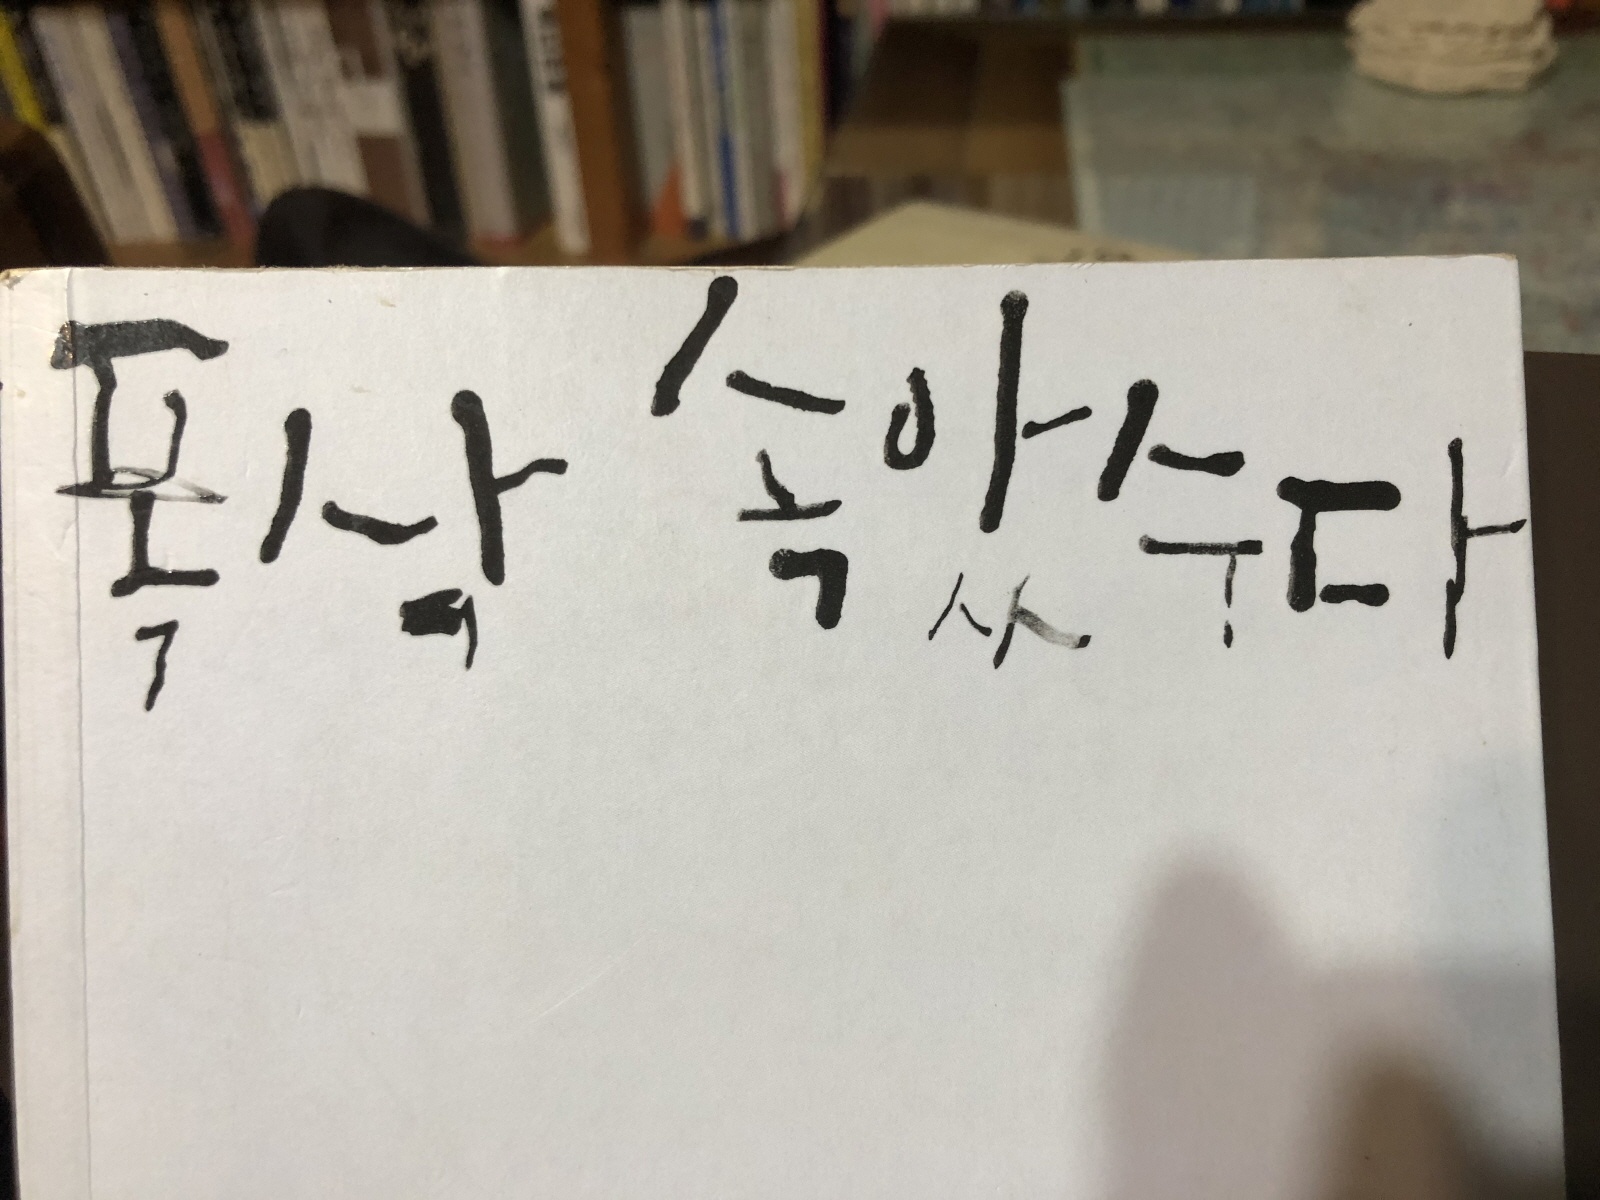 폭삭 속았수다